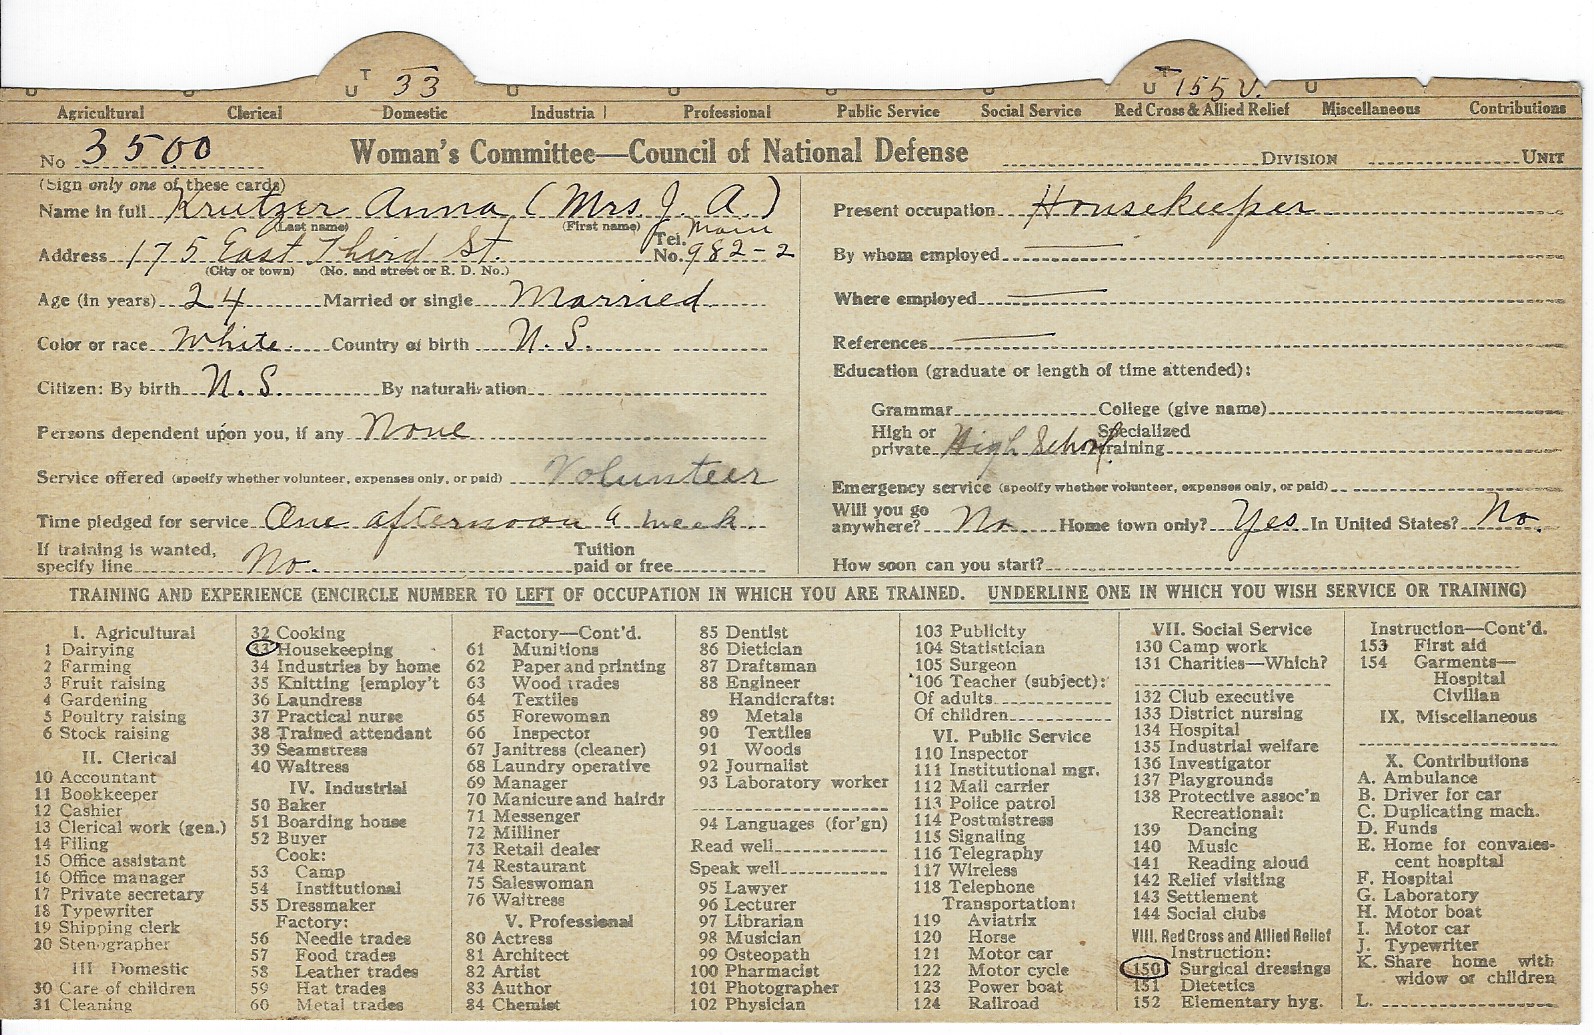 T 33 T 155 V.
U U U U U U U U U
Agricultural Clerical Domestic Industrial Professional Public Service Social Service Red Cross & Allied Relief Miscellaneous Contributions
No 3500 Woman's Committee—Council of National Defense DIVISION UNIT
(Sign only one of these cards)
Name in full Krutzer Anna (Mrs J. A.)
(Last name) (First name)
Address 175 East Third St. Tel. No. Main 982-2
(City or town) (No. and street or R. D. No.)
Age (in years) 24 Married or single Married
Color or race White. Country of birth U.S.
Citizen: By birth U.S. By naturalization
Persons dependent upon you, if any None
Service offered (specify whether volunteer, expenses only, or paid) Volunteer
Time pledged for service One afternoon a week
If training is wanted, specify line No. Tuition paid or free
Present occupation Housekeeper
By whom employed
Where employed
References
Education (graduate or length of time attended):
Grammar College (give name)
High or private High School. Specialized training
Emergency service (specify whether volunteer, expenses only, or paid)
Will you go anywhere? No Home town only? Yes In United States? No.
How soon can you start?
TRAINING AND EXPERIENCE (ENCIRCLE NUMBER TO LEFT OF OCCUPATION IN WHICH YOU ARE TRAINED. UNDERLINE ONE IN WHICH YOU WISH SERVICE OR TRAINING)
I. Agricultural
1 Dairying
2 Farming
3 Fruit raising
4 Gardening
5 Poultry raising
6 Stock raising
II. Clerical
10 Accountant
11 Bookkeeper
12 Cashier
13 Clerical work (gen.)
14 Filing
15 Office assistant
16 Office manager
17 Private secretary
18 Typewriter
19 Shipping clerk
20 Stenographer
III Domestic
30 Care of children
31 Cleaning
32 Cooking
33 Housekeeping
34 Industries by home
35 Knitting [employ't
36 Laundress
37 Practical nurse
38 Trained attendant
39 Seamstress
40 Waitress
IV. Industrial
50 Baker
51 Boarding house
52 Buyer
Cook:
53 Camp
54 Institutional
55 Dressmaker
Factory:
56 Needle trades
57 Food trades
58 Leather trades
59 Hat trades
60 Metal trades
Factory—Cont'd.
61 Munitions
62 Paper and printing
63 Wood trades
64 Textiles
65 Forewoman
66 Inspector
67 Janitress (cleaner)
68 Laundry operative
69 Manager
70 Manicure and hairdr
71 Messenger
72 Milliner
73 Retail dealer
74 Restaurant
75 Saleswoman
76 Waitress
V. Professional
80 Actress
81 Architect
82 Artist
83 Author
84 Chemist
85 Dentist
86 Dietician
87 Draftsman
88 Engineer
Handicrafts:
89 Metals
90 Textiles
91 Woods
92 Journalist
93 Laboratory worker
94 Languages (for'gn)
Read well
Speak well
95 Lawyer
96 Lecturer
97 Librarian
98 Musician
99 Osteopath
100 Pharmacist
101 Photographer
102 Physician
103 Publicity
104 Statistician
105 Surgeon
106 Teacher (subject):
Of adults
Of children
VI. Public Service
110 Inspector
111 Institutional mgr.
112 Mail carrier
113 Police patrol
114 Postmistress
115 Signaling
116 Telegraphy
117 Wireless
118 Telephone
Transportation:
119 Aviatrix
120 Horse
121 Motor car
122 Motor cycle
123 Power boat
124 Railroad
VII. Social Service
130 Camp work
131 Charities—Which?
132 Club executive
133 District nursing
134 Hospital
135 Industrial welfare
136 Investigator
137 Playgrounds
138 Protective assoc'n
Recreational:
139 Dancing
140 Music
141 Reading aloud
142 Relief visiting
143 Settlement
144 Social clubs
VIII. Red Cross and Allied Relief
Instruction:
150 Surgical dressings
151 Dietetics
152 Elementary hyg.
Instruction—Cont'd.
153 First aid
154 Garments—
Hospital
Civilian
IX. Miscellaneous
X. Contributions
A. Ambulance
B. Driver for car
C. Duplicating mach.
D. Funds
E. Home for convales-
cent hospital
F. Hospital
G. Laboratory
H. Motor boat
I. Motor car
J. Typewriter
K. Share home with
widow or children
L.